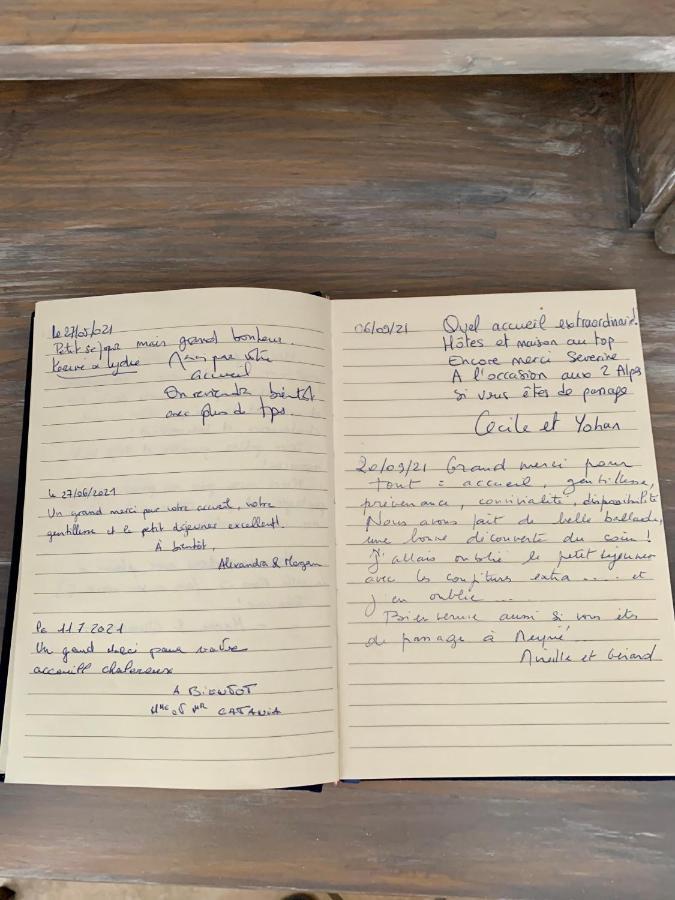 Le 27/05/2021
Petit séjour mais grand bonheur.
& Lydie Merci pour votre
accueil
On reviendra bientôt
avec plus de tps.
Le 27/06/2021
Un grand merci pour votre accueil, votre
gentillesse et le petit déjeuner excellent!
À bientôt,
Alexandra & Morgan
Le 11.7.2021
Un grand merci pour votre
accueill chalereux
A BIENTOT
Mme et Mr CATANIA
06/09/21 Quel accueil extraordinaire!
Hôtes et maison au top
Encore merci Séverine
A l'occasion aux 2 Alpes
si vous êtes de passage
Cecile et Yohan
20/09/21 Grand merci pour
tout : accueil, gentillesse,
prévenance, convivialité, disponibilité
Nous avons fait de belle ballade,
une bonne découverte du coin!
J'allais oublié le petit déjeuner
avec les confitures extra .... et
j'en oublie ....
Bienvenue aussi si vous êtes
de passage à
Mireille et Gérard